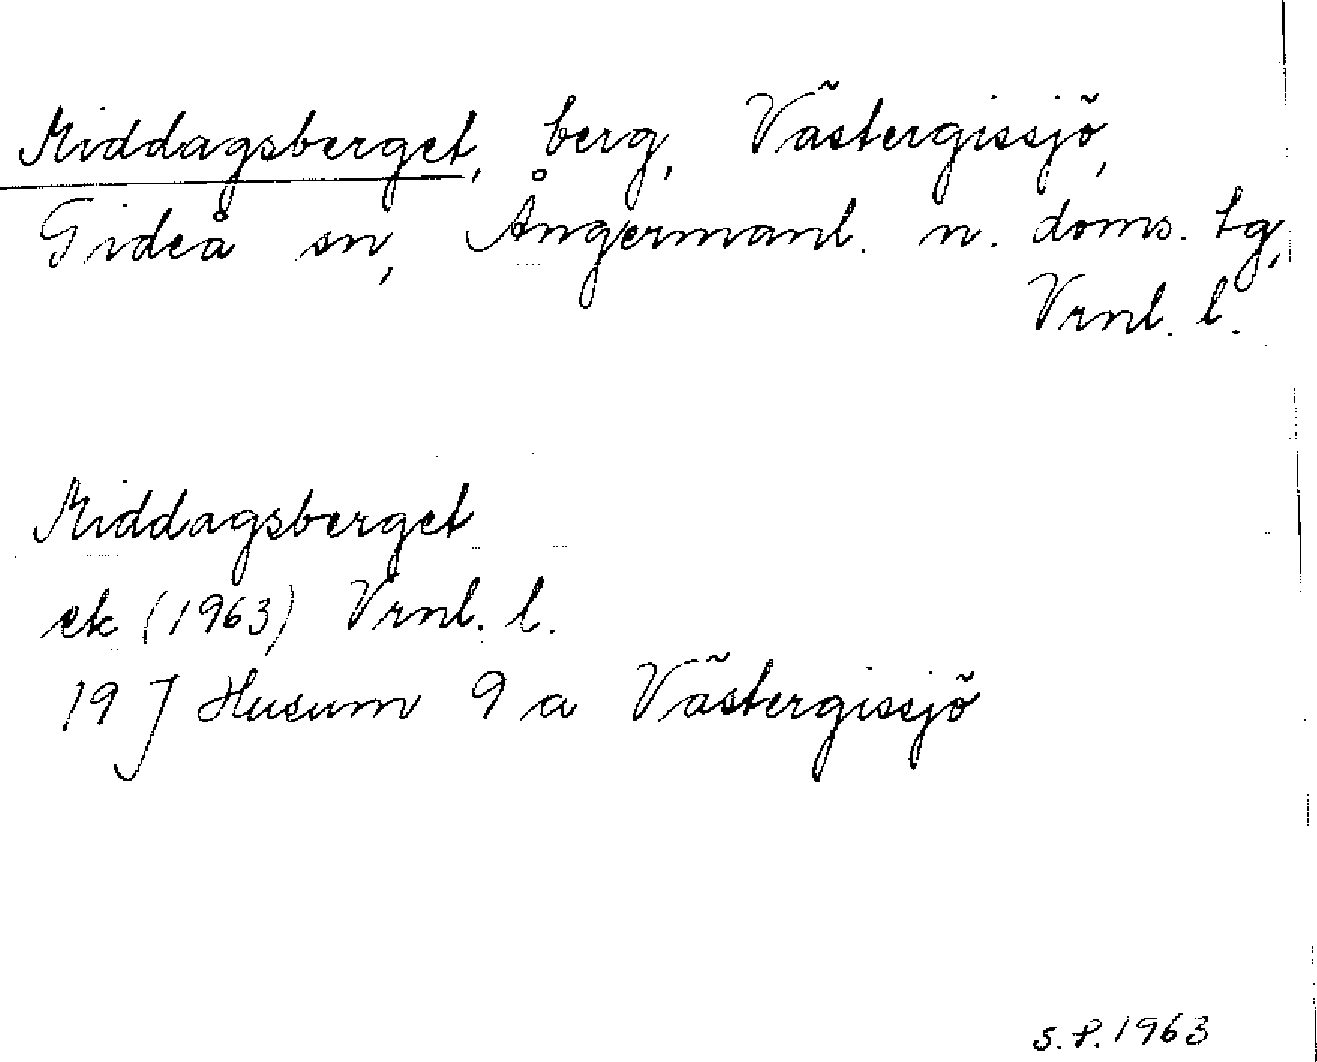 Middagsberget, berg, Västergissjö,
Gideå sn, Ångermanl. n. doms. tg,
Vrnl. l.
Middagsberget
ek (1963) Vrnl. l.
19 J Husum 9 a Västergissjö
S.P. 1963